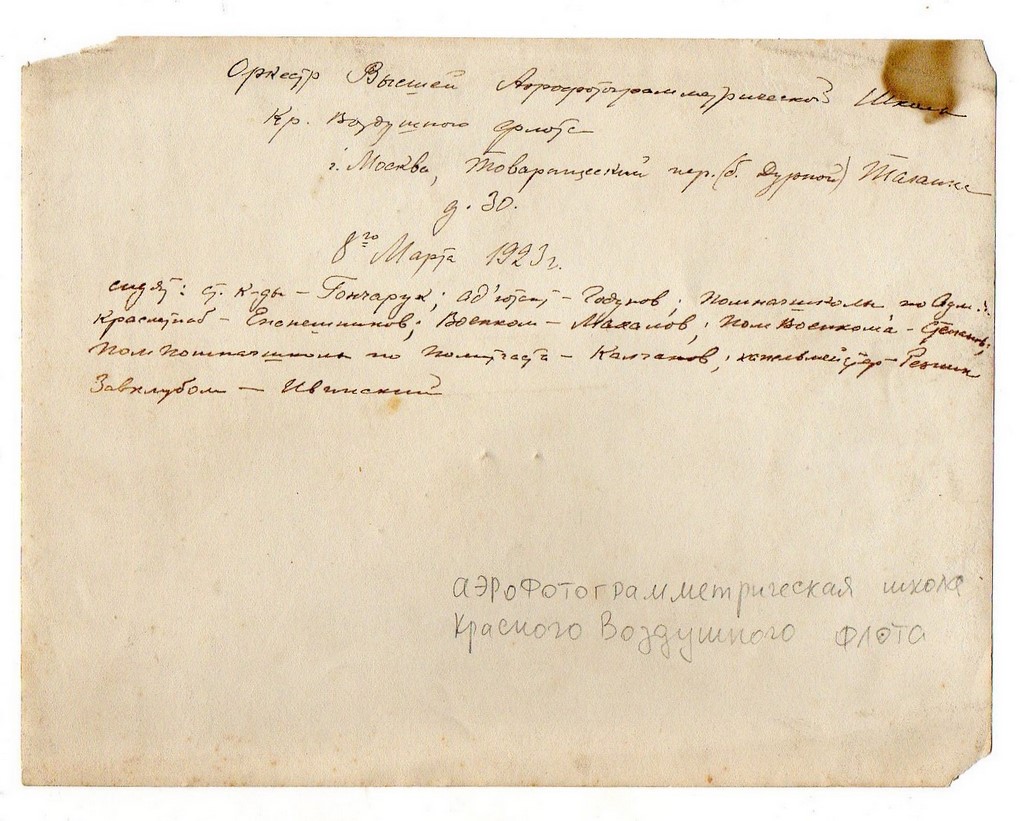 Оркестр Высшей Аэрофотограмметрической Школы
Кр. Воздушного флота
г. Москва, Товарищеский пер. (б. Дурной) Таганка
д. 30.
8го Марта 1923 г.
сидят: ст. к-ды – Гончарук; ад'ютант – Годунов; Помначшколы по Адм.:
– Военком – Махалов; Пом Военкома –
Пом по – Калганов; капельмейстер – Резник
Завклубом – Ивинский
аэрофотограмметрическая школа
Красного Воздушного флота